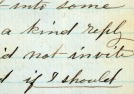 into some
a kind reply
not invite
if I should